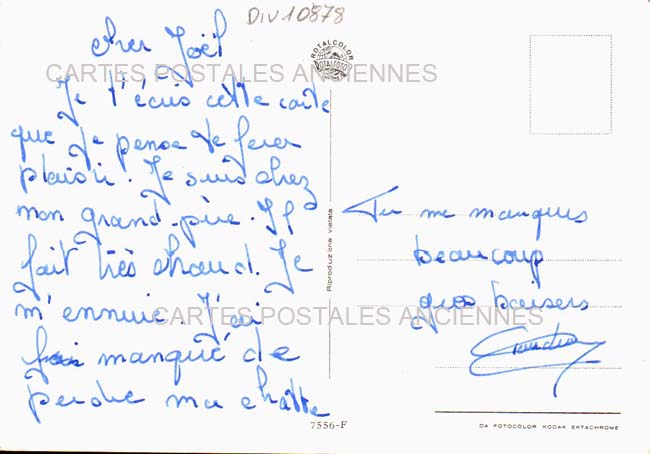 DIV10878
cher Joël
Je t'écris cette carte
que je pense te ferer
plaisir. Je suis chez
mon grand-père. Il
fait très chaud. Je
m'ennuie. J'ai
manqué de
perdre ma chatte
Tu me manques
beaucoup
gros baisers
ROTALCOLOR
ROTALFOTO
CARTES POSTALES ANCIENNES
CARTES POSTALES ANCIENNES
Riproduzione vietata
7556-F
DA FOTOCOLOR KODAK EKTACHROME